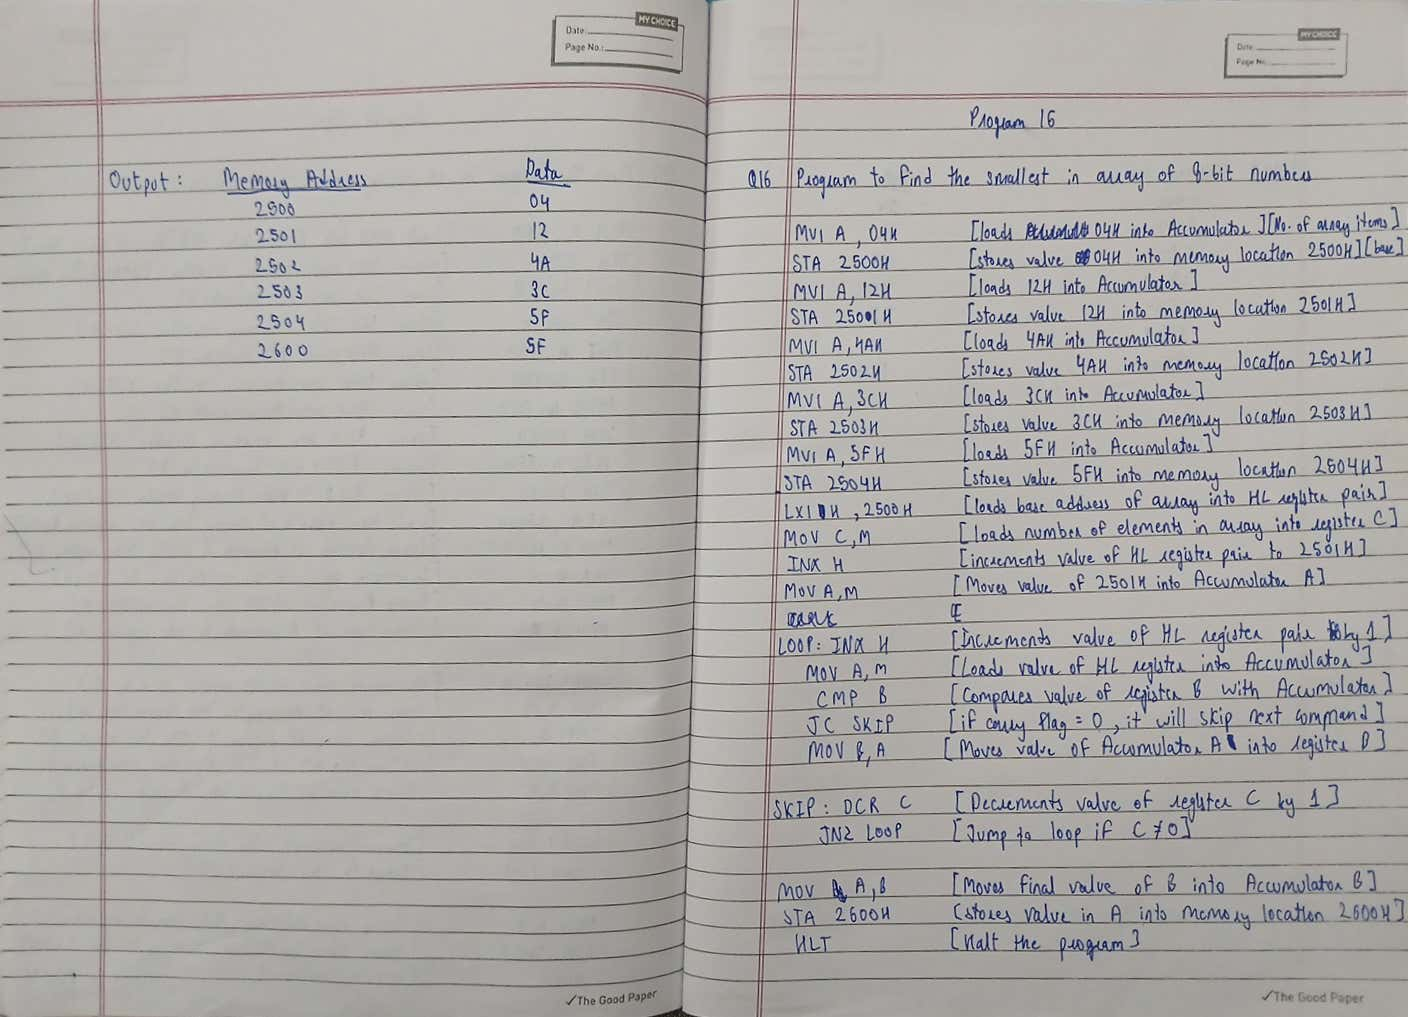 MY CHOICE
Date
Page No.:
Output: Memory Address Data
2500 04
2501 12
2502 4A
2503 3C
2504 5F
2600 5F
✓The Good Paper
MY CHOICE
Date
Page No.
Program 16
Q16 Program to find the smallest in array of 8-bit numbers
MVI A, 04H [loads 04H into Accumulator][No. of array items]
STA 2500H [stores value 04H into memory location 2500H][base]
MVI A, 12H [loads 12H into Accumulator]
STA 2501H [stores value 12H into memory location 2501H]
MVI A, 4AH [loads 4AH into Accumulator]
STA 2502H [stores value 4AH into memory location 2502H]
MVI A, 3CH [loads 3CH into Accumulator]
STA 2503H [stores value 3CH into memory location 2503H]
MVI A, 5FH [loads 5FH into Accumulator]
STA 2504H [stores value 5FH into memory location 2504H]
LXI H, 2500H [loads base address of array into HL register pair]
MOV C, M [loads number of elements in array into register C]
INX H [increments value of HL register pair to 2501H]
MOV A, M [Moves value of 2501H into Accumulator A]
LOOP: INX H [Increments value of HL register pair by 1]
MOV A, M [Loads value of HL register into Accumulator]
CMP B [Compares value of register B with Accumulator]
JC SKIP [if carry flag = 0, it will skip next command]
MOV B, A [Moves value of Accumulator A into register B]
SKIP: DCR C [Decrements value of register C by 1]
JNZ LOOP [Jump to loop if C ≠ 0]
MOV A, B [Moves final value of B into Accumulator B]
STA 2600H [stores value in A into memory location 2600H]
HLT [Halt the program]
✓The Good Paper